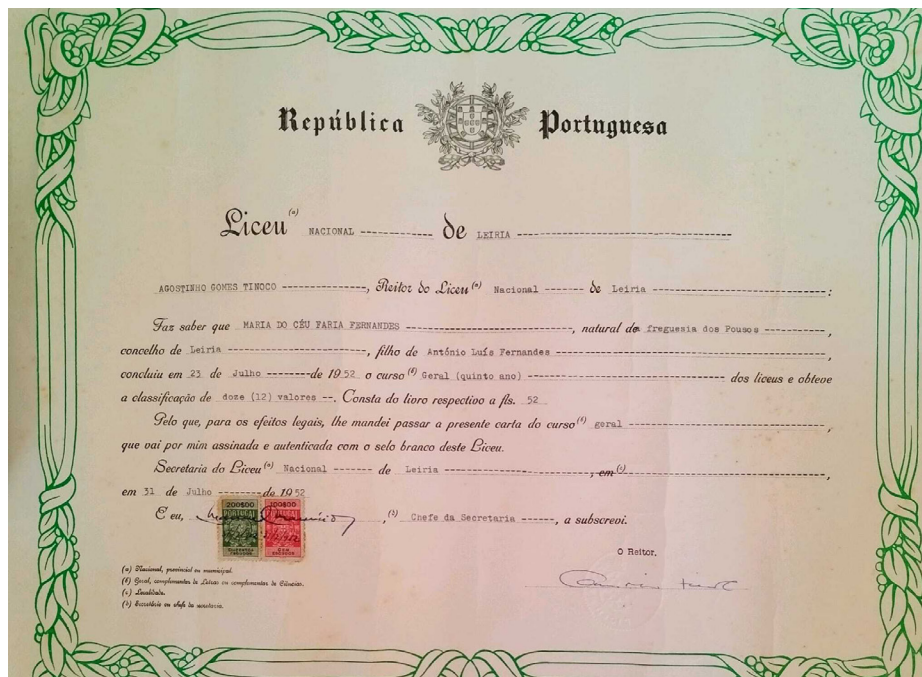 República Portuguesa
Liceu (a) NACIONAL ----------- de LEIRIA --------------------------------
AGOSTINHO GOMES TINOCO -------------, Reitor do Liceu (a) Nacional ------- de Leiria ---------------------------:
Faz saber que MARIA DO CÉU FARIA FERNANDES -------------------------, natural da freguesia dos Pousos ----------,
concelho de Leiria ---------------------, filho de António Luís Fernandes ------------------------------------------,
concluiu em 23 de Julho --------de 1952 o curso (b) Geral (quinto ano) ------------------------------ dos liceus e obteve
a classificação de doze (12) valores --. Consta do livro respectivo a fls. 52
Pelo que, para os efeitos legais, lhe mandei passar a presente carta do curso (b) geral ------------------------------,
que vai por mim assinada e autenticada com o selo branco deste Liceu.
Secretaria do Liceu (a) Nacional ------ de Leiria ----------------------, em (c)
em 31 de Julho --------de 1952
E eu, , (b) Chefe da Secretaria ------, a subscrevi.
200$00 100$00
PORTUGAL PORTUGAL
DUZENTOS CEM
ESCUDOS ESCUDOS
O Reitor,
(a) Nacional, provincial ou municipal.
(b) Geral, complementar de Letras ou complementar de Ciências.
(c) Localidade.
(b) Secretário ou chefe da secretaria.